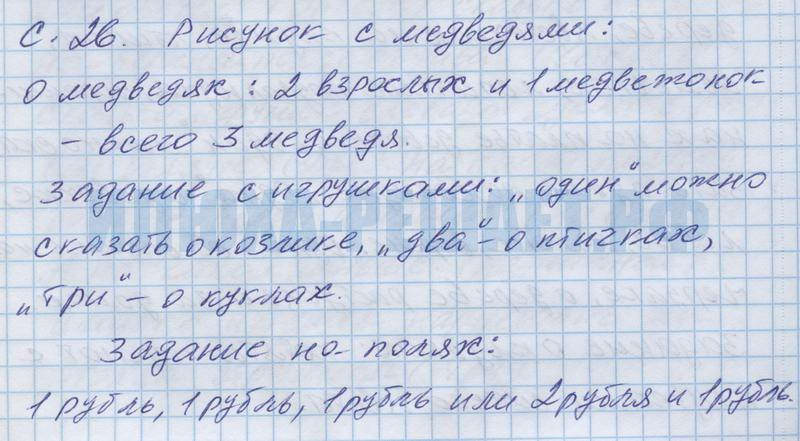 С. 26. Рисунок с медведями:
О медведях: 2 взрослых и 1 медвежонок
- всего 3 медведя.
Задание с игрушками: „один" можно
сказать о козлике, „два" - о птичках,
„три" - о куклах.
Задание на полях:
1 рубль, 1 рубль, 1 рубль или 2 рубля и 1 рубль.